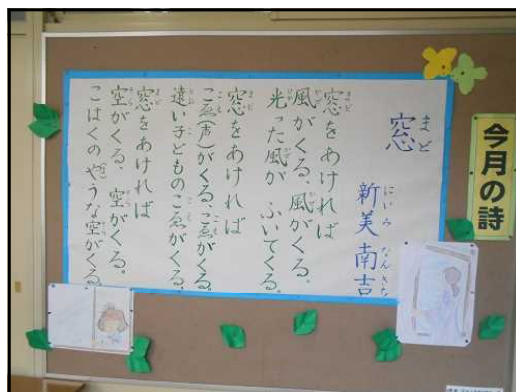 今月の詩
窓
新美南吉
窓をあければ
風がくる、風がくる。
光った風が ふいてくる。
窓をあければ
こゑ(声)がくる、こゑがくる。
遠い子どものこゑがくる。
窓をあければ
空がくる、空がくる。
こはくのやうな空がくる。